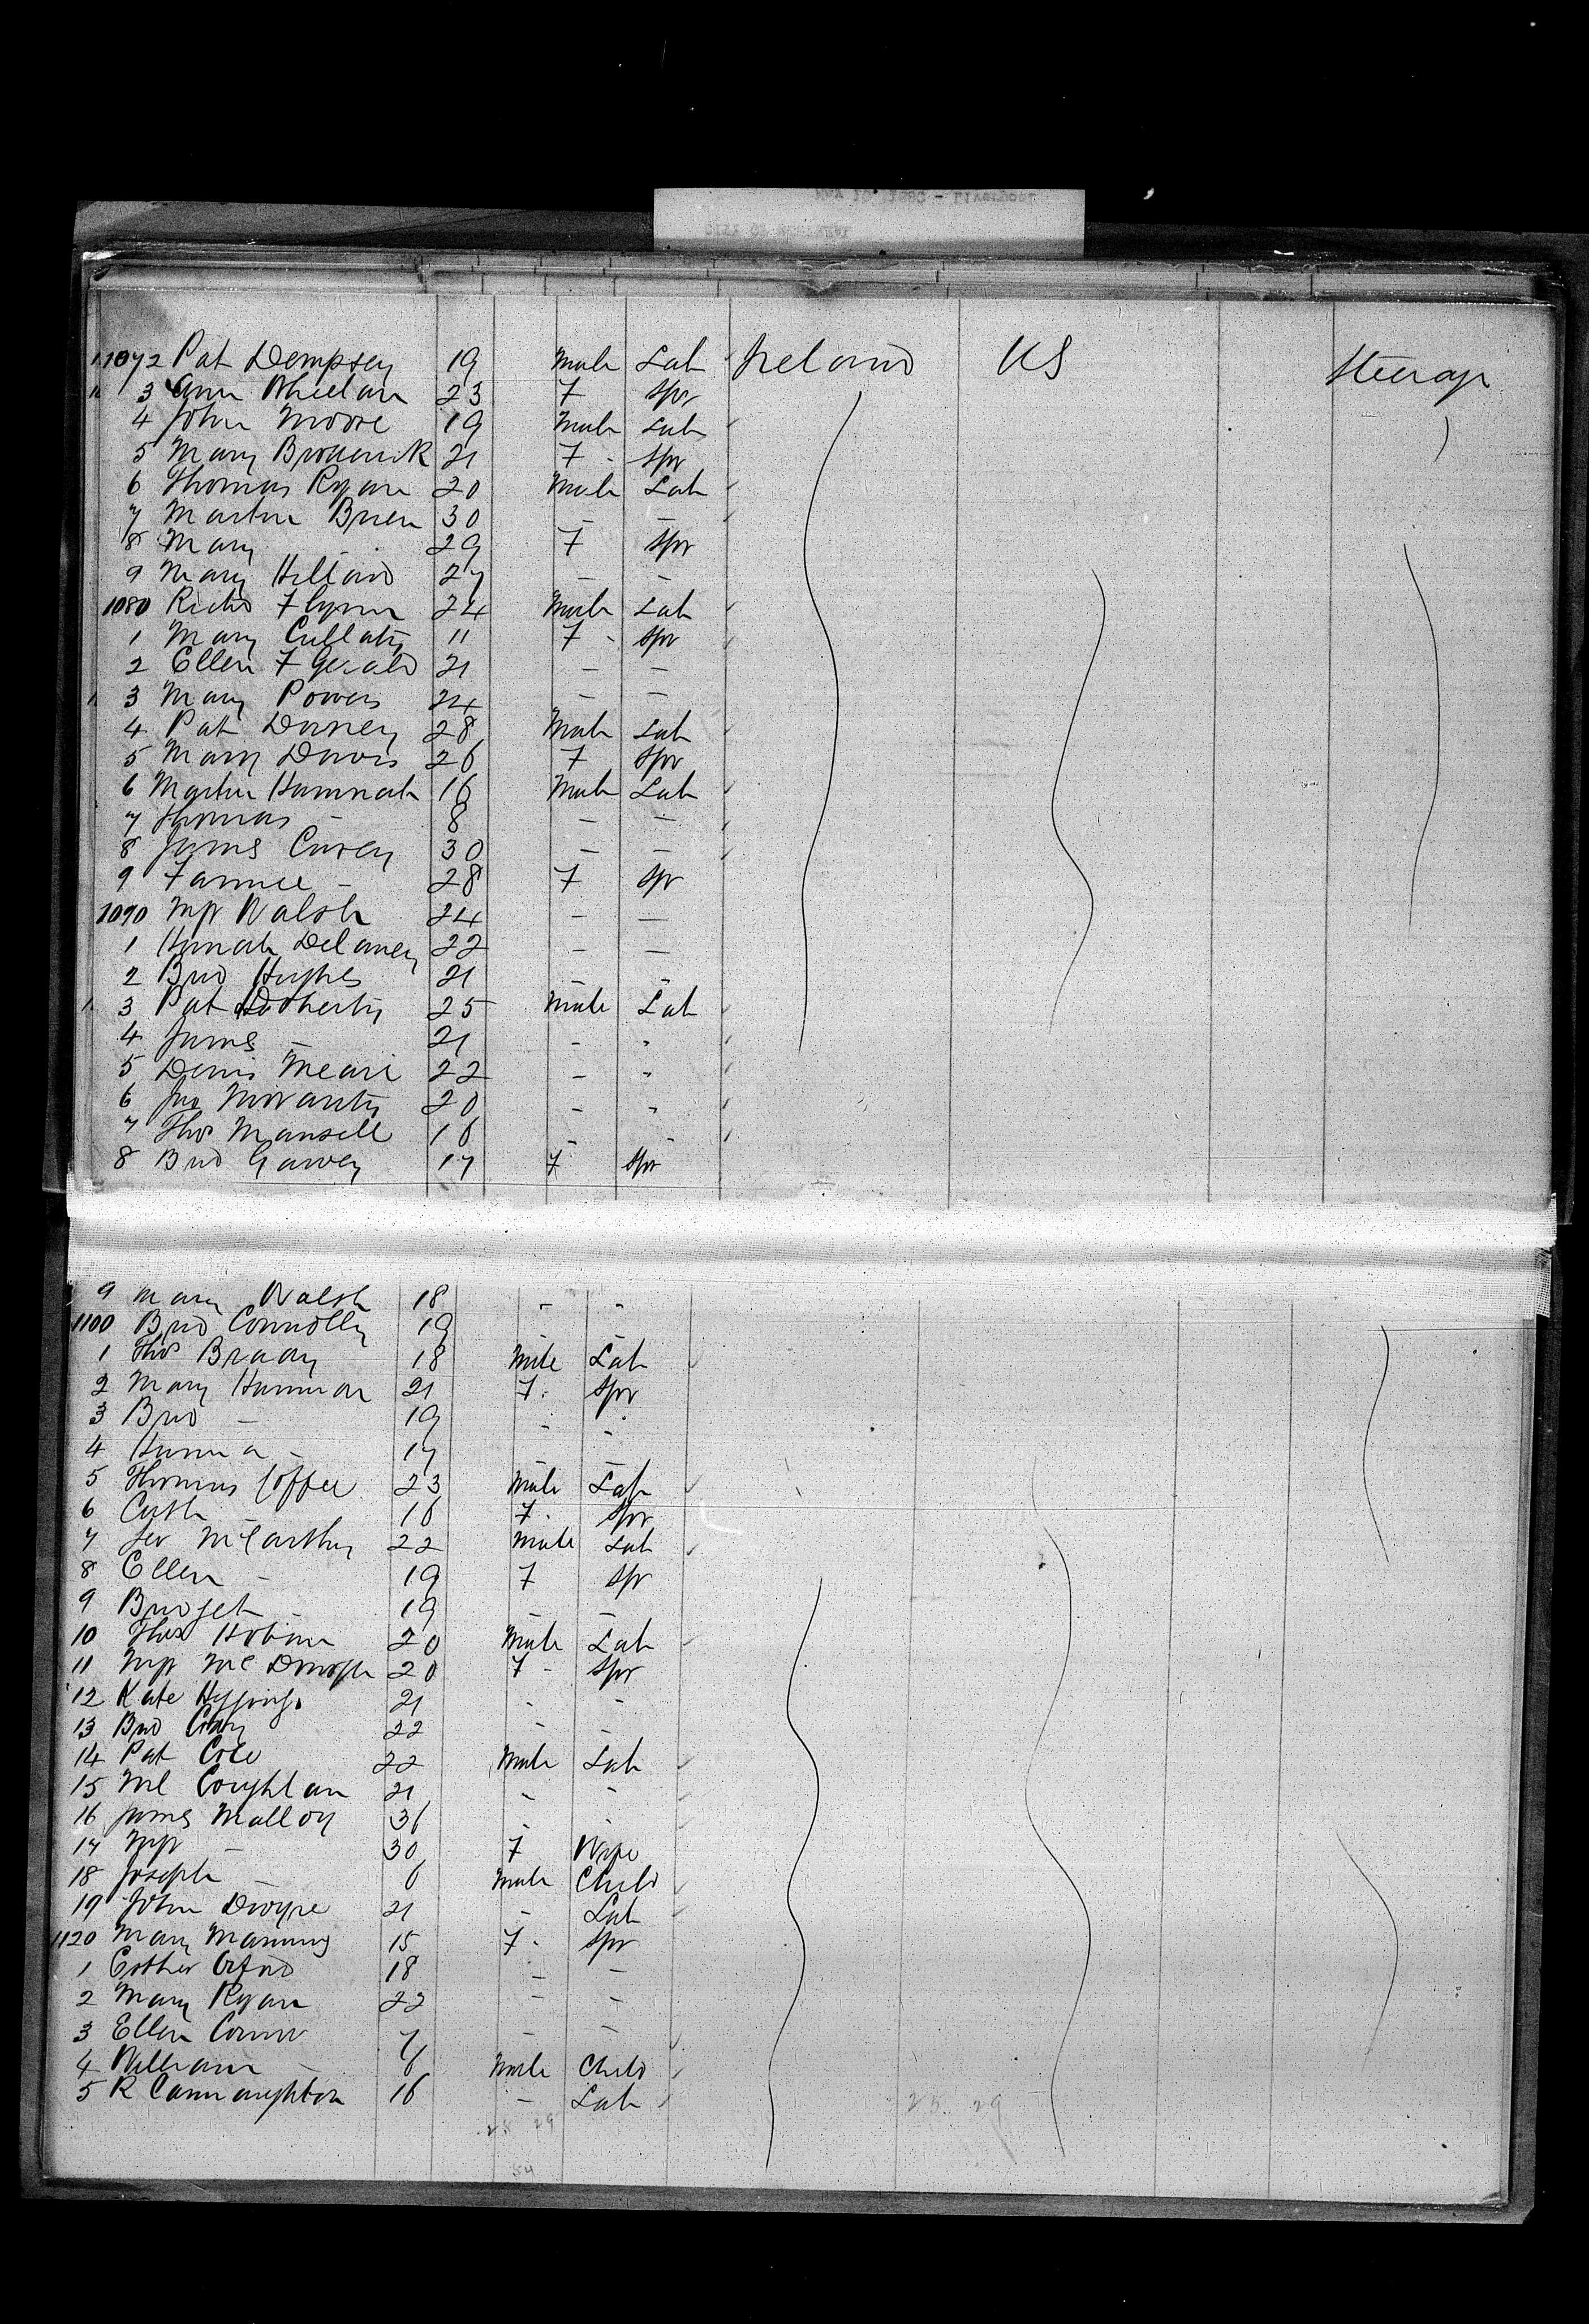 1072 Pat Dempsey 19 Male Lab Ireland US Steerage
3 Ann Wheelan 23 F Spr
4 John Moore 19 Male Lab
5 Mary Broderick 21 F - Spr
6 Thomas Ryan 20 Male Lab
7 Martin Brien 30 - -
8 Mary - 29 F Spr
9 Mary Hilland 27 - -
1080 Richd Flynn 24 Male Lab
1 Mary Cullaty 11 F - Spr
2 Ellen F Gerald 21 - -
3 Mary Powers 24 - -
4 Pat Dorney 28 Male Lab
5 Mary Davis 26 F Spr
6 Martin Hannah 16 Male Lab
7 Thomas - 8 - -
8 James Carey 30 - -
9 Fannie - 28 F Spr
1090 Mgt Walsh 24 - -
1 Hanah Delaney 22 - -
2 Brid Hughes 21 - -
3 Pat Doherty 25 Male Lab
4 James - 21 - "
5 Denis Meare 22 - "
6 Jno Moriarty 20 - "
7 Thos Mansell 16 - -
8 Brid Garvey 17 F Spr
9 Mary Walsh 18 - -
1100 Brid Connolly 19 - -
1 Thos Brady 18 Male Lab
2 Mary Hannan 21 F. Spr
3 Brid - 19 - -
4 Hanna - 17 - -
5 Thomas Coffee 23 Male Lab
6 Cath - 16 F. Spr
7 Jer McCarthy 22 Male Lab
8 Ellen - 19 F Spr
9 Bridget - 19 - -
10 Thos Hoban 20 Male Lab
11 Mgt McDonogh 20 F - Spr
12 Kate Higgins 21 - -
13 Brid 22 - -
14 Pat Cole 22 Male Lab
15 Ml Coughlan 21 - -
16 James Malloy 36 - -
17 Mgt - 30 F Wife
18 Joseph - 6 Male Child
19 John Dwyre 21 - Lab
1120 Mary Manning 15 F. Spr
1 Esther 18 - -
2 Mary Ryan 22 - -
3 Ellen Connor 7 - -
4 William - 6 Male Child
5 R Cannaughton 16 - Lab
28 29 25 29
54